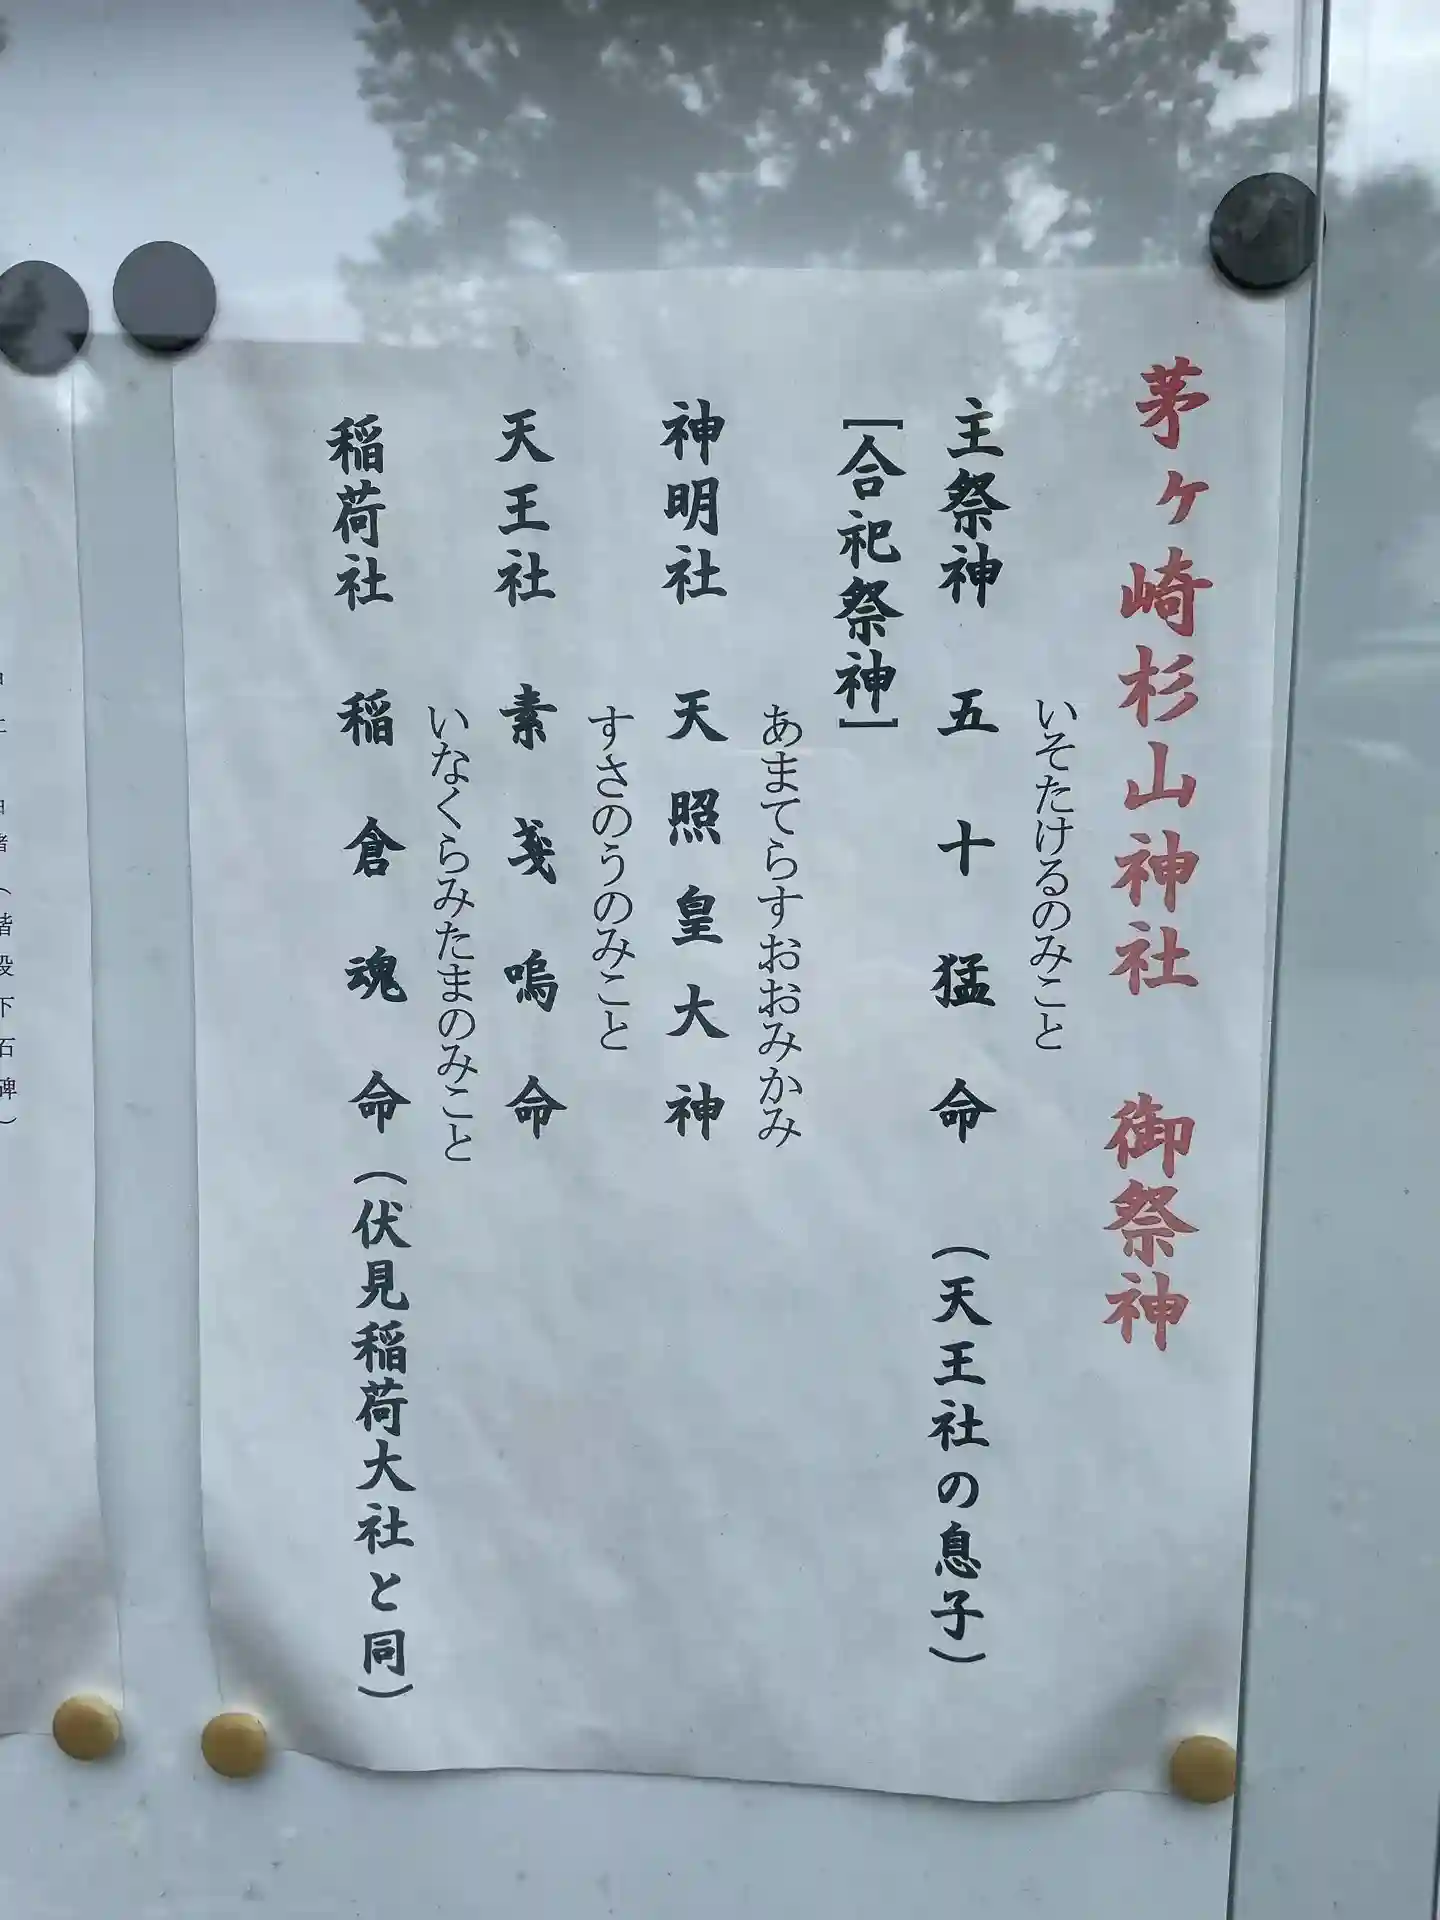 茅ヶ崎杉山神社 御祭神
いそたけるのみこと
主祭神 五十猛命 (天王社の息子)
[合祀祭神]
あまてらすおおみかみ
神明社 天照皇大神
すさのうのみこと
天王社 素戔嗚命
いなくらみたまのみこと
稲荷社 稲倉魂命(伏見稲荷大社と同)
(階段下石碑)